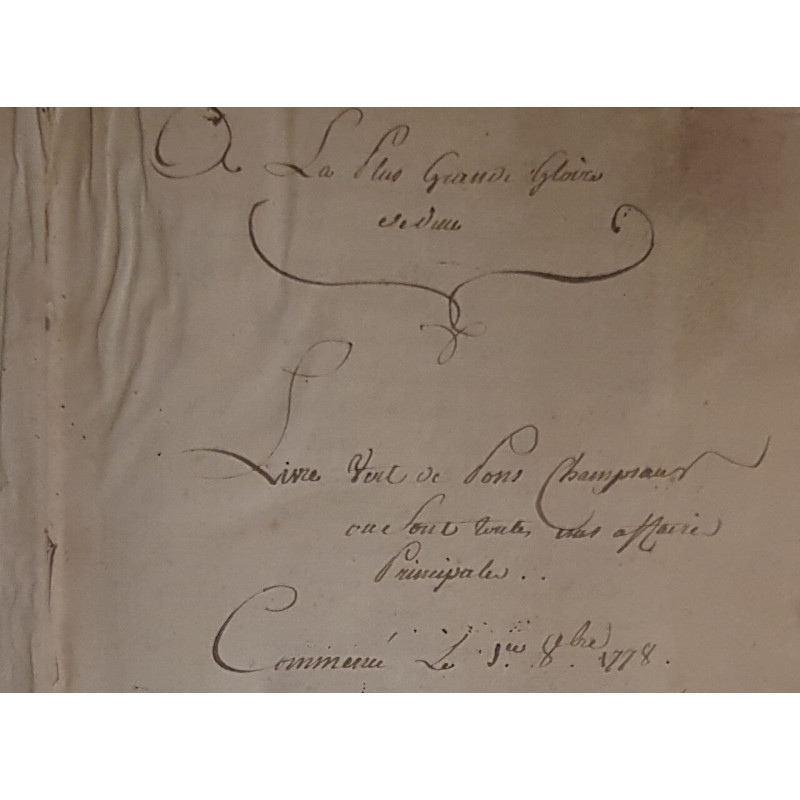 A La Plus Grande Gloire
de dieu
Livre Vert de Pons Champsaur
ou Sont toutes mes affaires
Principales..
Commencé Le 1er 8bre 1778.